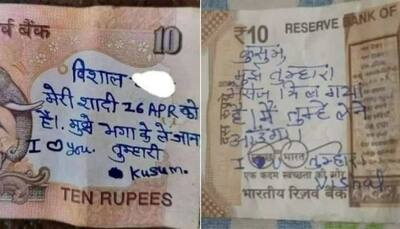 र्व बैंक
10
विशाल
मेरी शादी 26 APR को
है। मुझे भगा के ले जाना
I ♡ you. तुम्हारी
kusum.
TEN RUPEES
₹10 RESERVE BANK OF
कुसुम,
मुझे तुम्हारा
मिल गया
है। मैं तुम्हे लेने
आउंगा।
I
भारत
तुम्हारा
Vishal
एक कदम स्वच्छता की ओर
भारतीय रिज़र्व बैंक